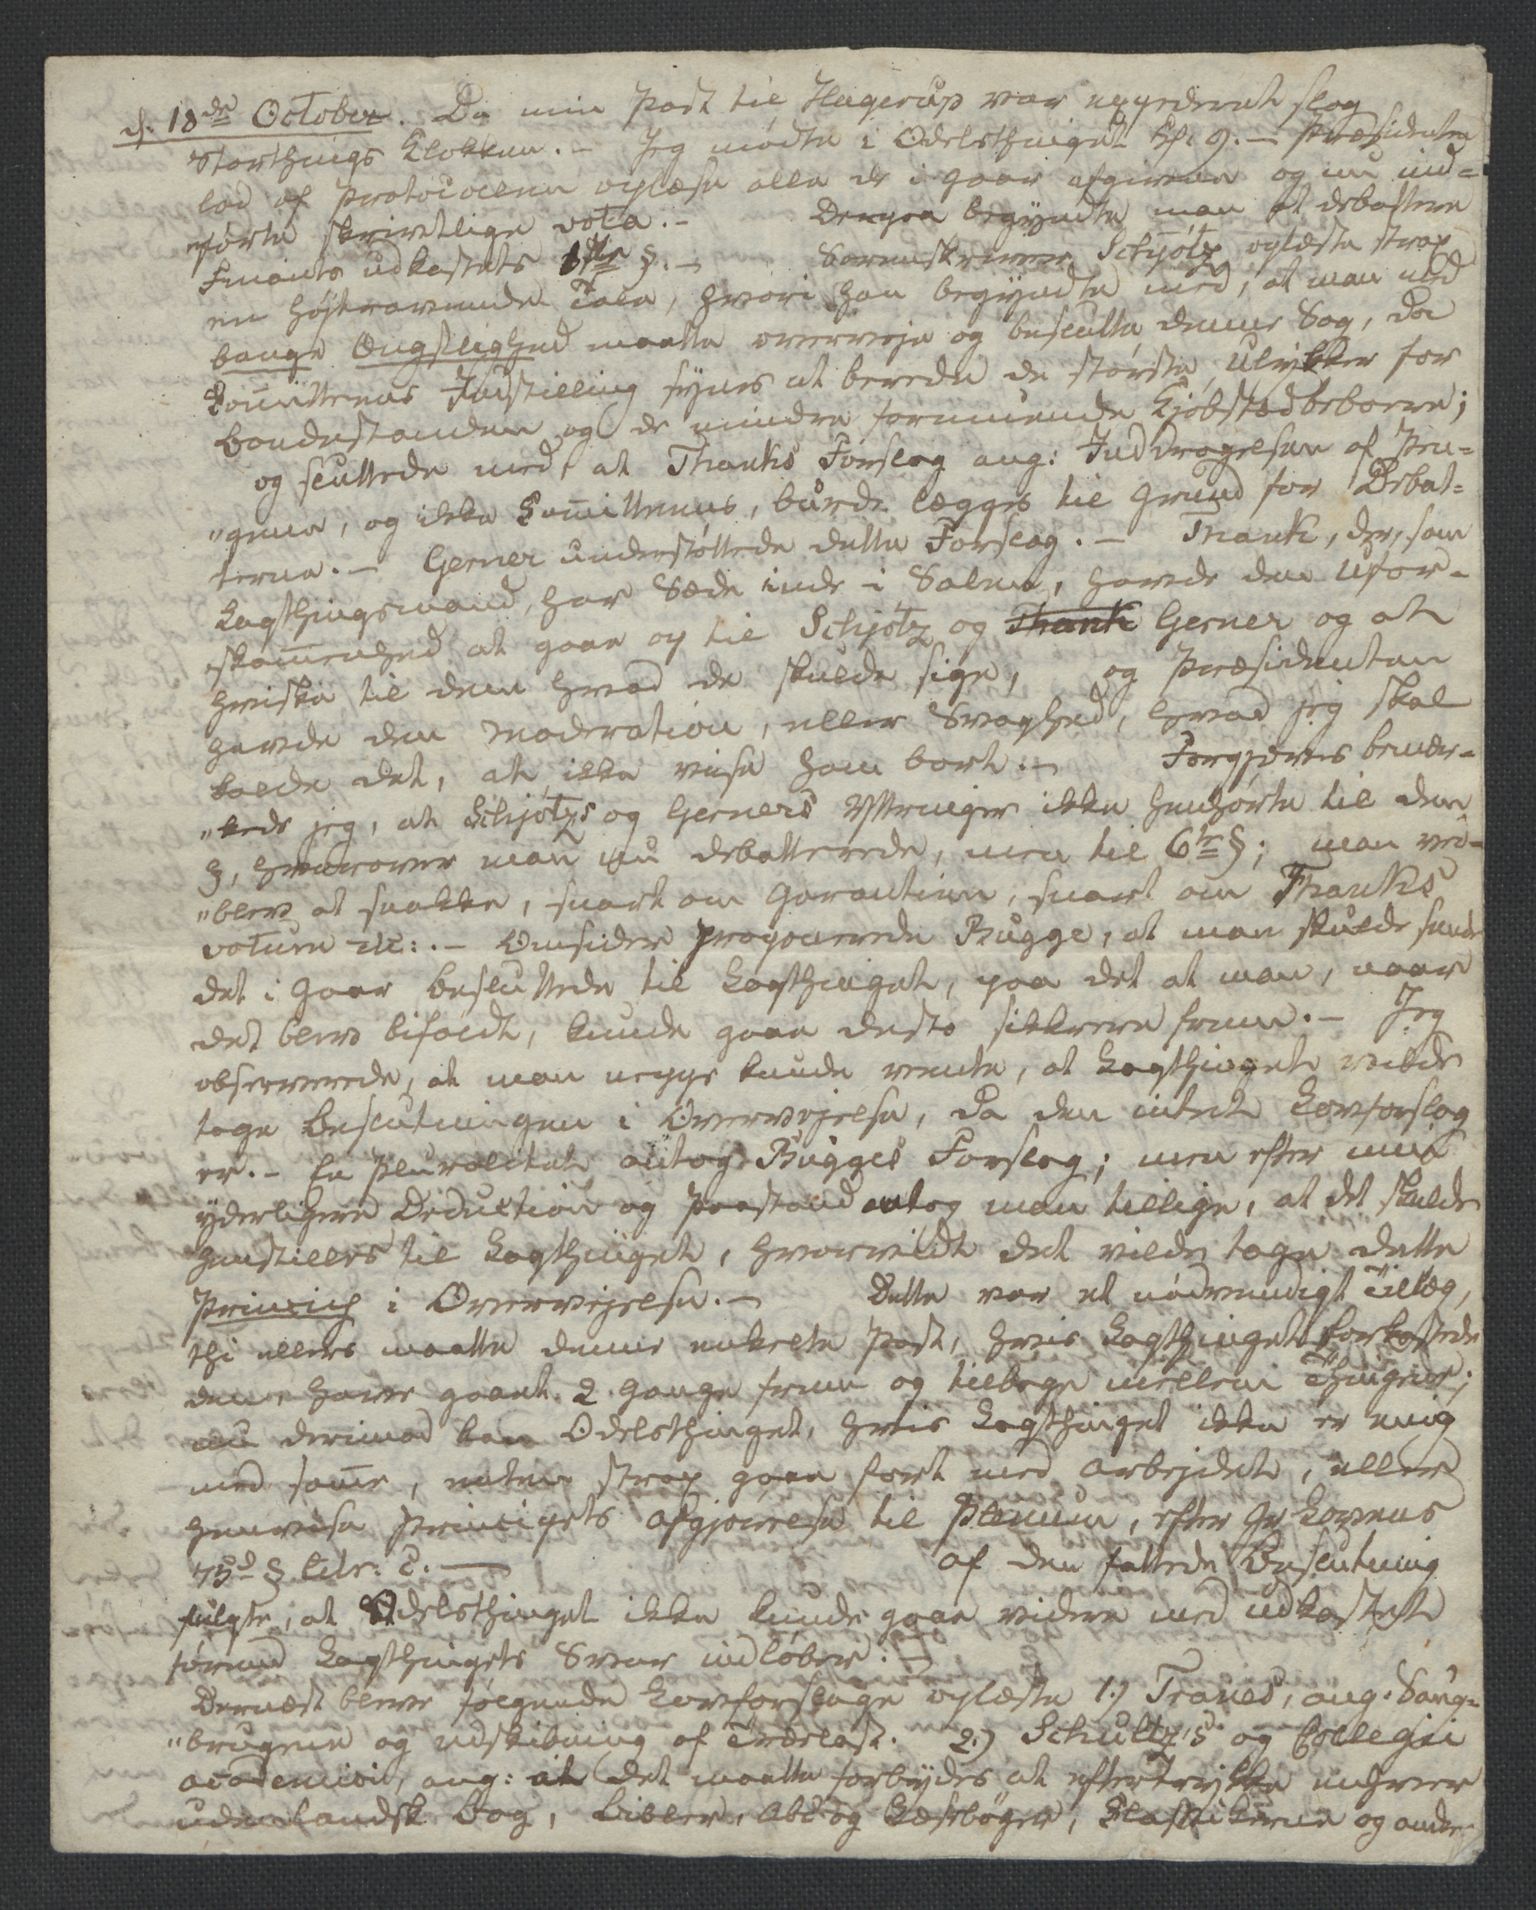 d: 18de October. Da min Post til Hagerup var expederet slog
Storthings Klokken. – Jeg mødte i Odelsthinget Kl: 9. – Præsidenten
lod af Protocollen oplæse alle de i Gaar afgivne og nu ind=
førte skrivtlige vota. – Derpaa begyndte man at debattere
Finants udkastets 1ste §. – Sorenskriver Schjøtz oplæste strax
en højtravende Tale, hvori han begyndte med, at man med
bange Ængstlighed maatte overveje og beslutte denne Sag, da
Comitteens Indstilling synes at berede de største Ulykker for
Bondestanden og de mindre formuende Kjøbstadbeboere;
og sluttede med, at Thanks Forslag ang: Inddragelsen af Pen=
"gene, og ikke Comitteens, burde lægges til Grund for Debat=
terne. – Gerner understøttede dette Forslag. – Thank, der, som
Lagthingsmand, har Sæde inde i Salen, havde den Ufor-
skammenhed at gaae op til Schjøtz og Thank Gerner og at
hviske til dem hvad de skulde sige, og Præsidenten
havde den Moderation, eller Svaghed, hvad jeg skal
kalde det, at ikke viise ham bort. – Forgjeves bemær-
"kede jeg, at Schjøtzs og Gerners Yttringer ikke henhørte til den
§, hvorover man nu debatterede, men til 6te §; man ved-
"blev at snakke, snart om Garantien, snart om Thanks
votum etc: . – Omsider proponerede Bugge, at man skulde sende
det i Gaar besluttede til Lagthinget, paa det at man, naar
det blev bifaldt, kunde gaae desto sikkrere frem. – Jeg
observerede, at man neppe kunde vente, at Lagthinget vilde
tage Beslutningen i Overvejelse, da den intet Lovforslag
er. – En Pluralitet antog Bugges Forslag; men efter min
yderligere Deduction og Paastand antog man tillige, at det skulde
henstilles til Lagthinget, hvorvidt det vilde tage dette
Princip i Overvejelse. – Dette var et nødvendigt Tillæg,
thi ellers maatte denne enkelte Post, hvis Lagthinget forkastede
den, have gaaet 2 Gange frem og tilbage mellem Thingene;
nu derimod kan Odelsthinget, hvis Lagthinget ikke er enig
med samme, enten strax gaae fort med Arbejdet, eller
henvise Princippets Afgjørelse til Plenum, efter Gr Lovens
75d § Litr: C. – Af den fattede Beslutning
fulgte, at Odelsthinget ikke kunde gaae videre med Udkastet
førend Lagthingets Svar indløber. –
Dernæst bleve følgende Lovforslage oplæste 1.) Tranes, ang. Saug-
"brugene og Udskibning af Trælast. 2.) Schultz's og Collegii
academici, ang: at det maatte forbydes at eftertrykke enhver
udenlandsk Bog, Bibler, Abc og Læsebøger, Classikerne og andre